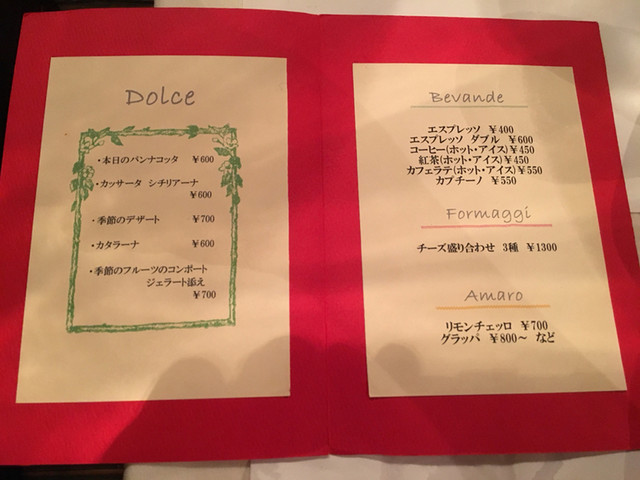 Dolce
・本日のパンナコッタ ￥600
・カッサータ シチリアーナ
￥600
・季節のデザート ￥700
・カタラーナ ￥600
・季節のフルーツのコンポート
ジェラート添え
￥700
Bevande
エスプレッソ ￥400
エスプレッソ ダブル ￥600
コーヒー(ホット・アイス)￥450
紅茶(ホット・アイス)￥450
カフェラテ(ホット・アイス)￥550
カプチーノ ￥550
Formaggi
チーズ盛り合わせ 3種 ￥1300
Amaro
リモンチェッロ ￥700
グラッパ ￥800～ など